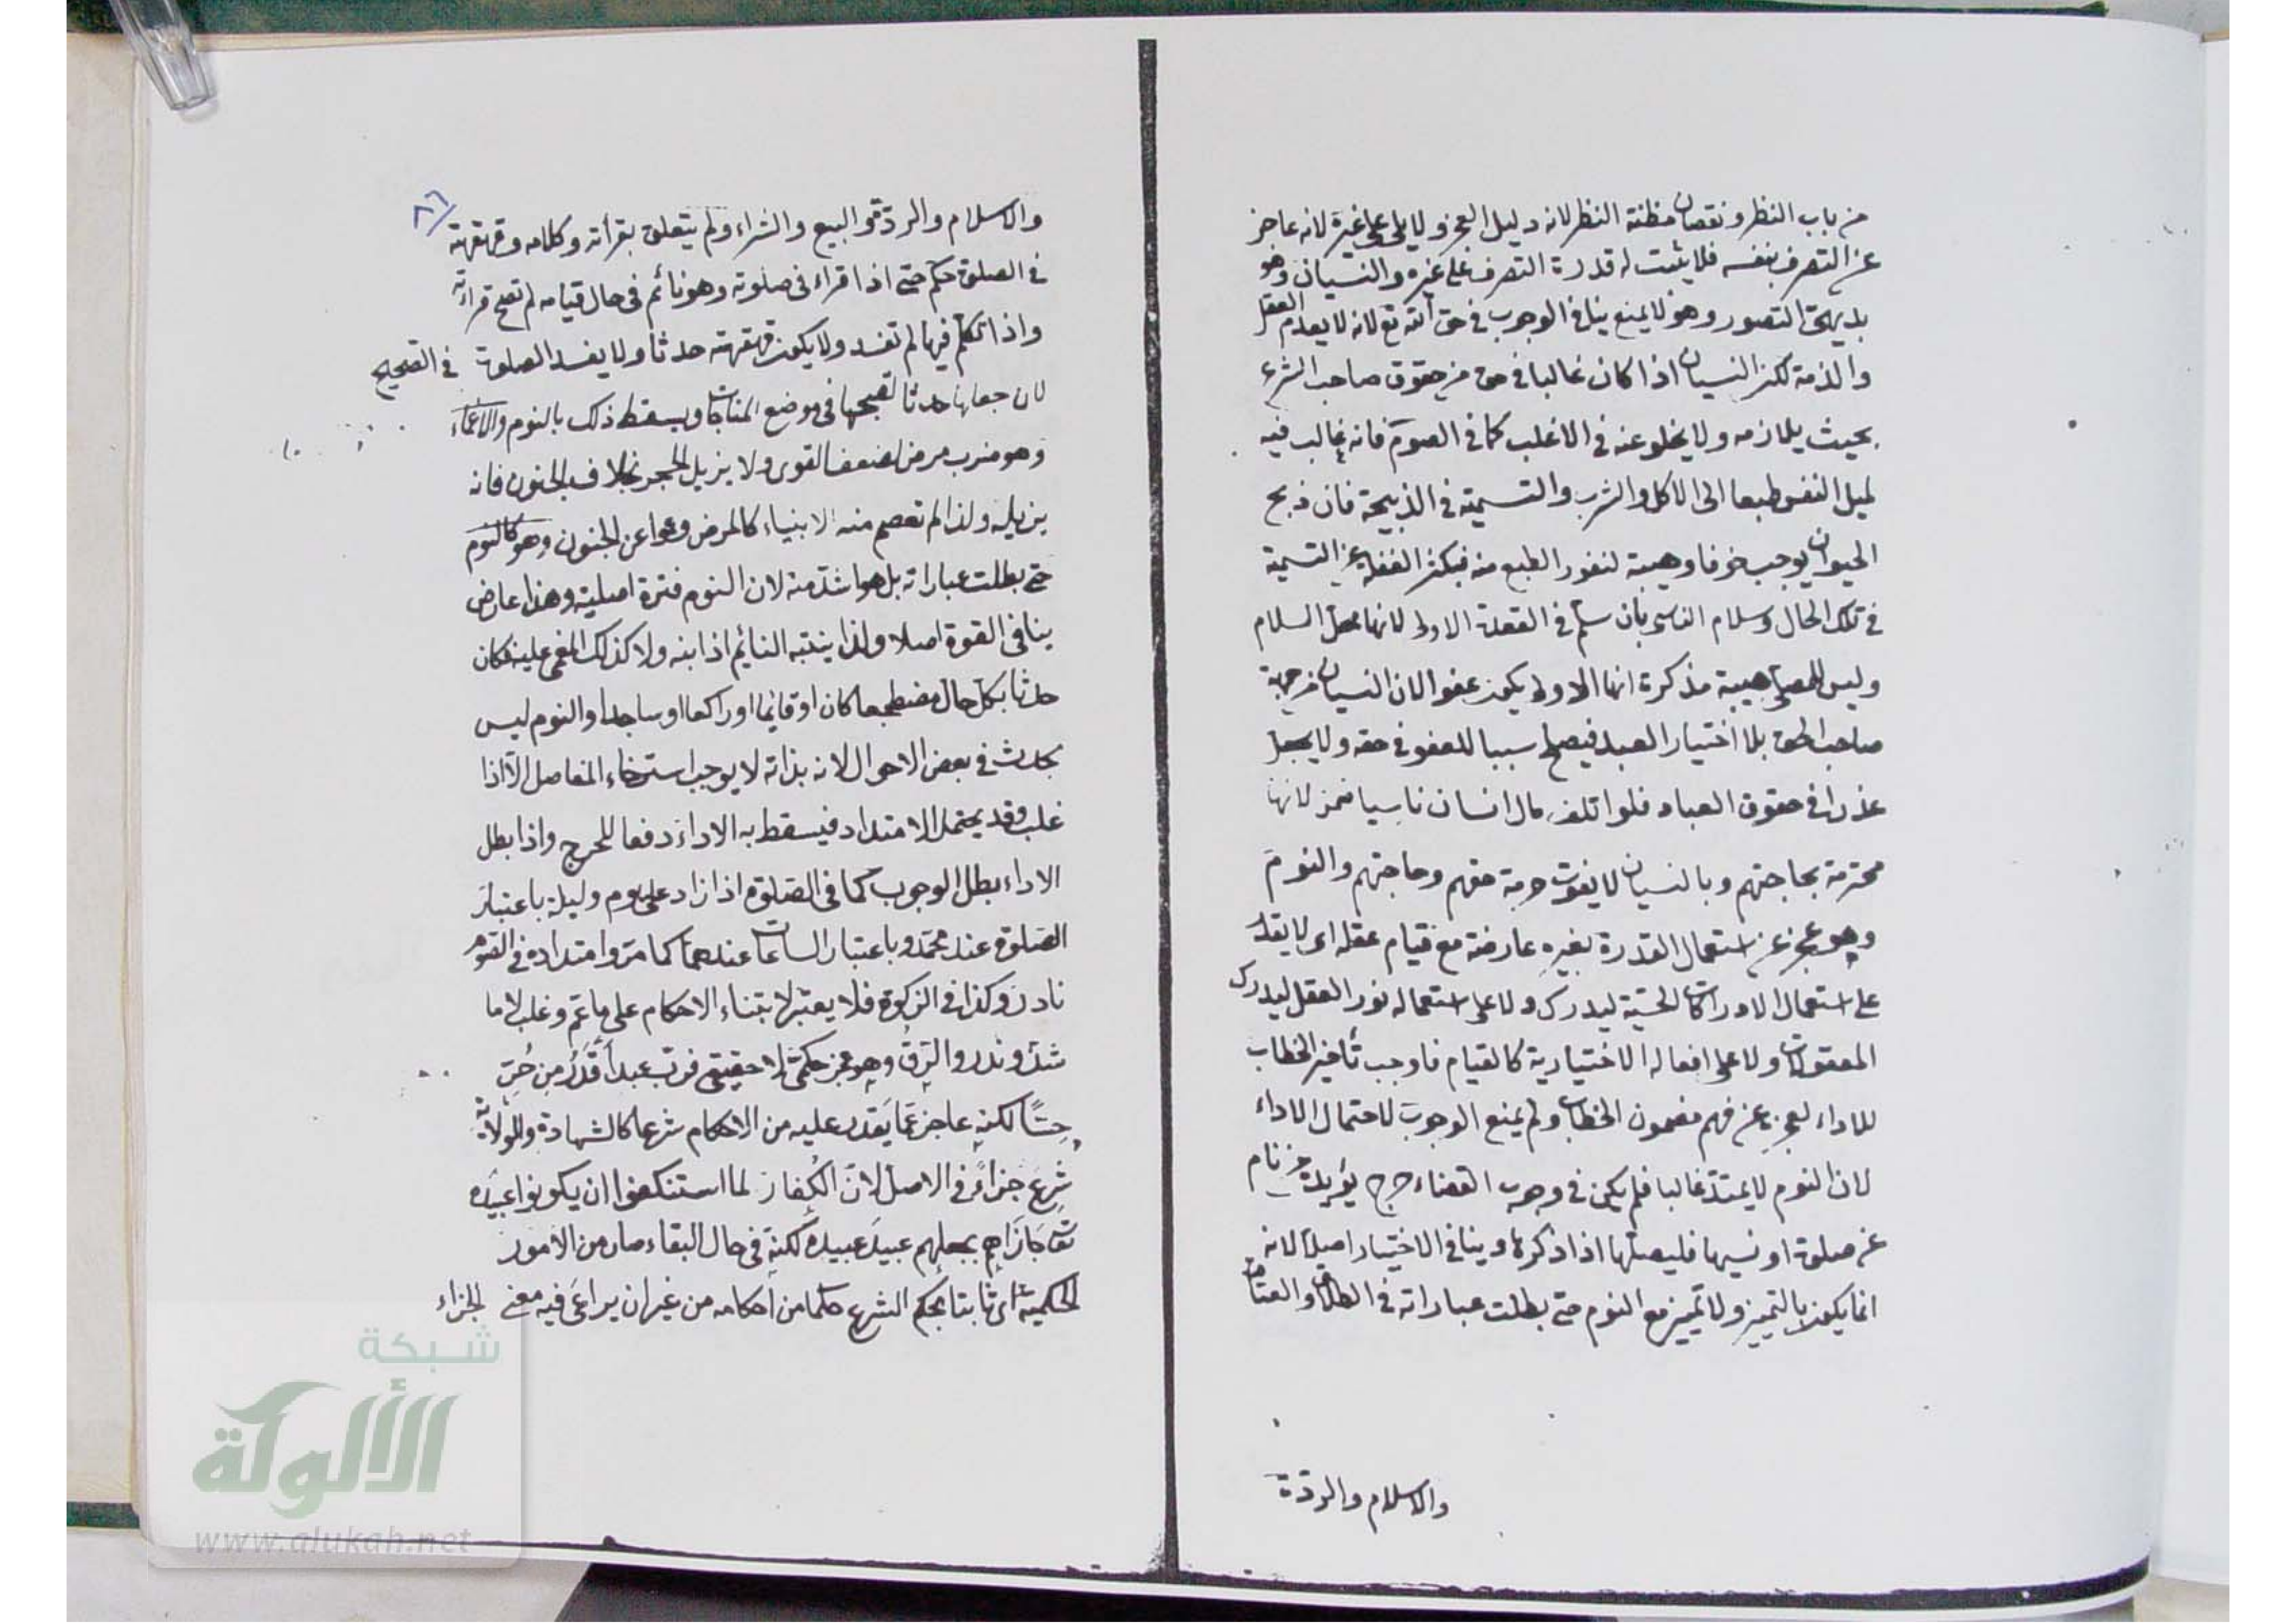 من باب النظر ونقصان مظنة النظر لانه دليل العجز ولا يلى على غيره لانه عاجز
عن التصرف بنفسه فلا يثبت له قدرة التصرف على غيره والنسيان وهو
بديهى التصور وهو لا يمنع ينافى الوجوب فى حق الله تع لانه لا يعدم العقل
والذمة لكن النسيان اذا كان غالبا فى حق من حقوق صاحب الشرع
بحيث يلازمه ولا يخلو عنه فى الاغلب كما فى الصوم فانه غالب فيه
لميل النفس طبعا الى الاكل والشرب والتسمية فى الذبيحة فان ذبح
الحيوان يوجب خوفا وهيبة لنفور الطبع منه فيكثر الغفلة عن التسمية
فى تلك الحال وسلام الناسى بان سلم فى القعدة الاولى لانها محل السلام
وليس للمصلى هيبة مذكرة انها الاولى يكون عفوا لان النسيان من جهة
صاحب الحق بلا اختيار العبد فيصلح سببا للعفو فى حقه ولا يجعل
عذرا فى حقوق العباد فلو اتلف مال انسان ناسيا ضمن لانها
محترمة بحاجتهم وبالنسيان لا يفوت حرمة حقهم وحاجتهم والنوم
وهو عجز عن استعمال القدرة بغيره عارضة مع قيام عقله اى لا يقدر
على استعمال الادراكات الحسية ليدرك ولا على استعماله نور العقل ليدرك
المعقولات ولا على افعاله الاختيارية كالقيام فاوجب تأخير الخطاب
للاداء لعجزه عن فهم مضمون الخطاب ولم يمنع الوجوب لاحتمال الاداء
لان النوم لا يمتد غالبا فلم يكن فى وجوب القضاء حرج يؤيده من نام
عن صلوة او نسيها فليصلها اذا ذكرها وينافى الاختيار اصلا لانه
انما يكون بالتمييز ولا تمييز مع النوم حتى بطلت عباراته فى الطلاق والعتاق
والاسلام والردة
٨٦
والاسلام والردة والبيع والشراء ولم يتعلق بقرأته وكلامه وقهقهته
فى الصلوة حكم حتى اذا قراء فى صلوته وهو نائم فى حال قيامه لم تصح قراءته
واذا تكلم فيها لم تفسد ولا يكون قهقهته حدثا ولا يفسد الصلوة فى الصحيح
لان جعلها حدثا لقبحها فى موضع المناجات ويسقط ذلك بالنوم والاغماء
وهو ضرب مرض لضعف القوى ولا يزيل الحجر بخلاف الجنون فانه
يزيله ولذا لم تعصم منه الانبياء كالمرض وعصموا عن الجنون وهو كالنوم
حتى بطلت عباراته بل هو اشد منه لان النوم فترة اصلية وهذا عارض
ينافى القوة اصلا ولذا ينتبه النائم اذا نبه ولا كذلك المغمى عليه فكان
حدثا بكل حال مضطجعا كان او قائما او راكعا او ساجدا والنوم ليس
بحدث فى بعض الاحوال لانه بذاته لا يوجب استرخاء المفاصل الا اذا
غلب وقد يحتمل الامتداد فيسقط به الاداء دفعا للحرج واذا بطل
الاداء بطل الوجوب كما فى الصلوة اذا زاد على يوم وليلة باعتبار
الصلوة عند محمد وباعتبار الساعات عندهما كما مر وامتداده فى الصوم
نادر وكذا فى الزكوة فلا يعتبر لابتناء الاحكام على ما عم وغلب لا ما
شذ وندر والرق وهو عجز حكمى لا حقيقى فرب عبد اقدر من حر
حسا لكنه عاجز عما يقدر عليه من الاحكام شرعا كالشهادة والولاية
شرع جزاء فى الاصل لان الكفار لما استنكفوا ان يكونوا عبيده
تع جازاهم بجعلهم عبيد عبيده لكنه فى حال البقاء صار من الامور
الحكمية اى ثابتا بحكم الشرع حكما من احكامه من غير ان يراعى فيه معنى الجزاء
شبكة
الألوكة
www.alukah.net